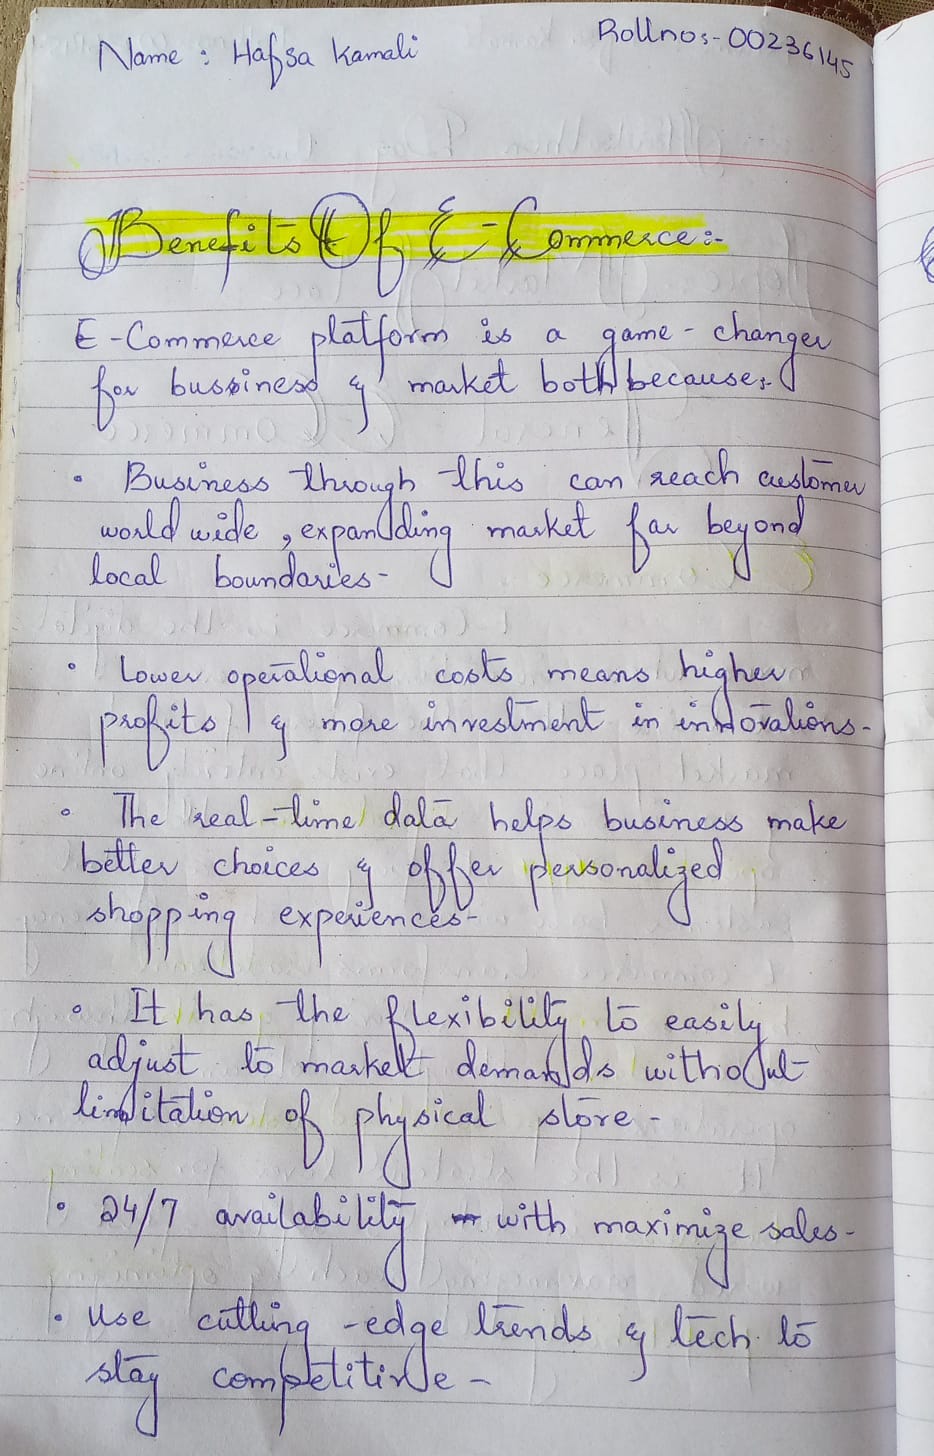 Name : Hafsa Kamali
Rollno:- 00236145
Benefits Of E-Commerce:-
E-Commerce platform is a game-changer
for bussiness & market both because:-
• Business through this can reach customer
world wide, expanding market far beyond
local boundaries-
• Lower operational costs means higher
profits & more investment in innovations-
• The real-time data helps business make
better choices & offer personalized
shopping experiences-
• It has the flexibility to easily
adjust to market demands without
limitation of physical store-
• 24/7 availability with maximize sales-
• Use cutting-edge trends & tech to
stay competitive-